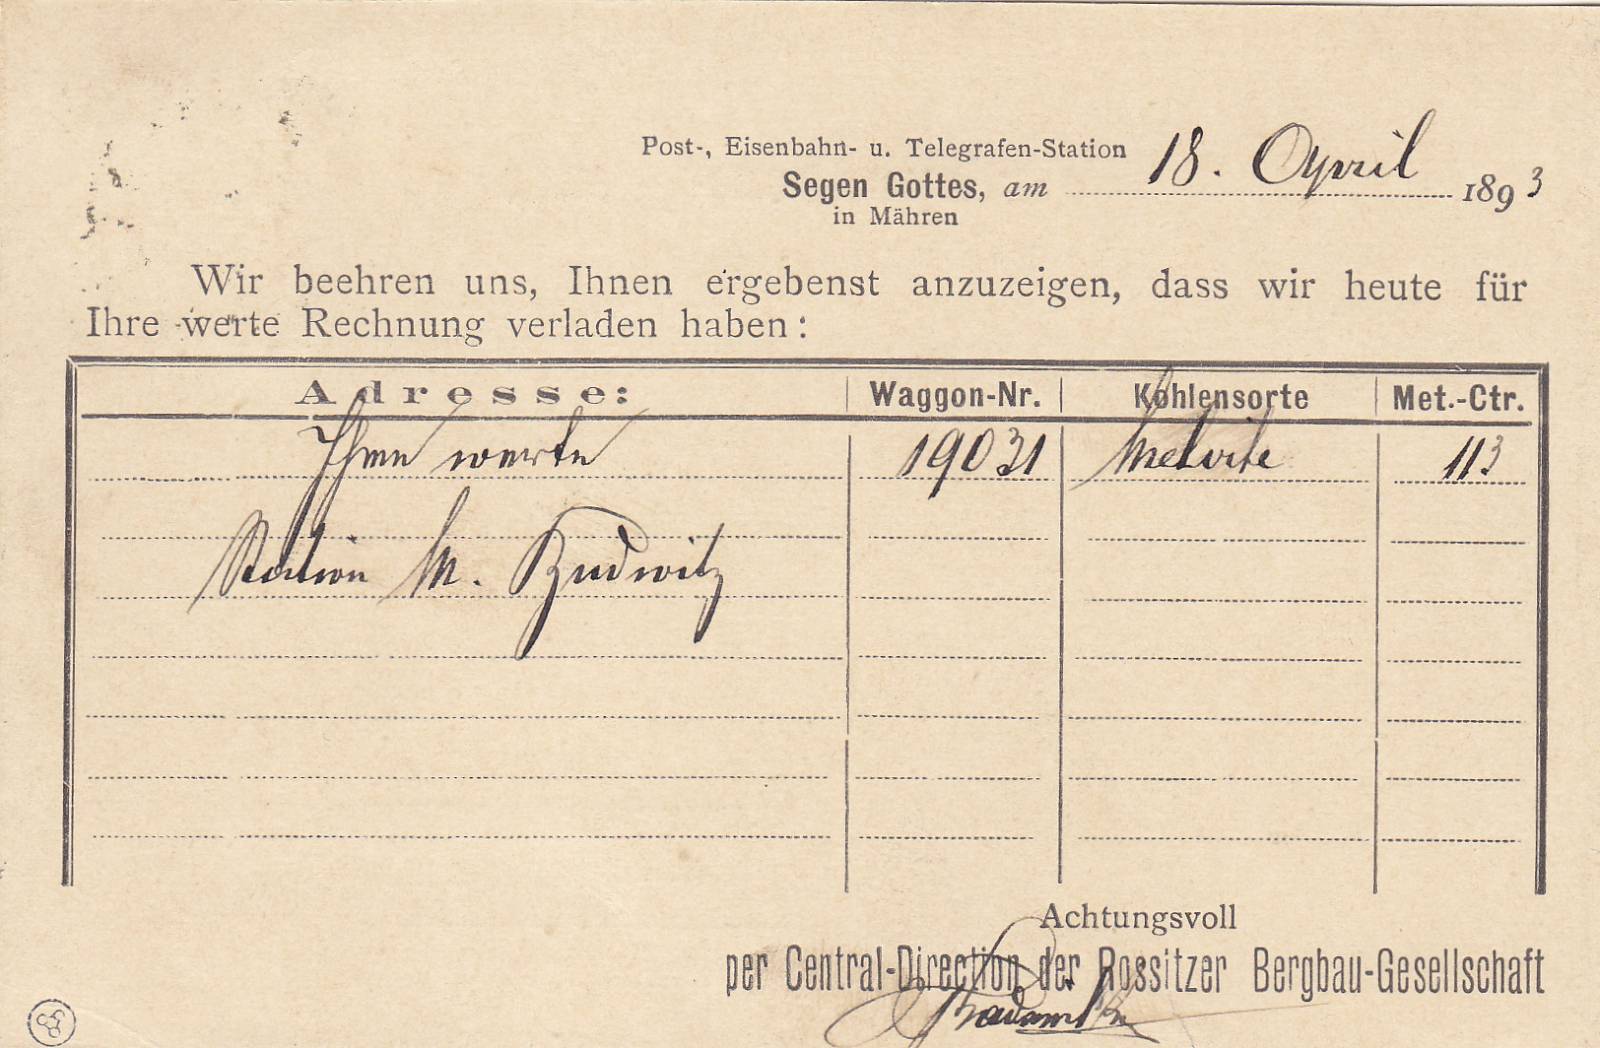 Post-, Eisenbahn- u. Telegrafen-Station
Segen Gottes, am 18. April 1893
in Mähren
Wir beehren uns, Ihnen ergebenst anzuzeigen, dass wir heute für
Ihre werte Rechnung verladen haben:
Adresse: Waggon-Nr. Kohlensorte Met.-Ctr.
Ihre werte 19031 113
Station M. Budwitz
Achtungsvoll
per Central-Direction der Rossitzer Bergbau-Gesellschaft
58